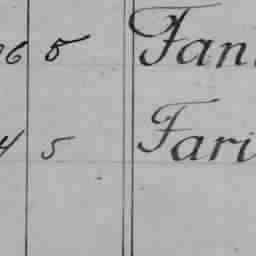 06 5 Fan
4 5 Fari